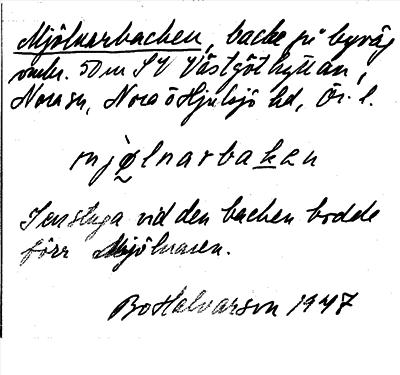 Mjölnarbacken, backe på byväg
omkr. 50 m SV Västgöthyttan,
Nora sn, Nora ö Hjulsjö hd, Ör. l.
mjölnarbaken
I en stuga vid den backen bodde
förr Mjölnaren.
Bo Halvarson 1947